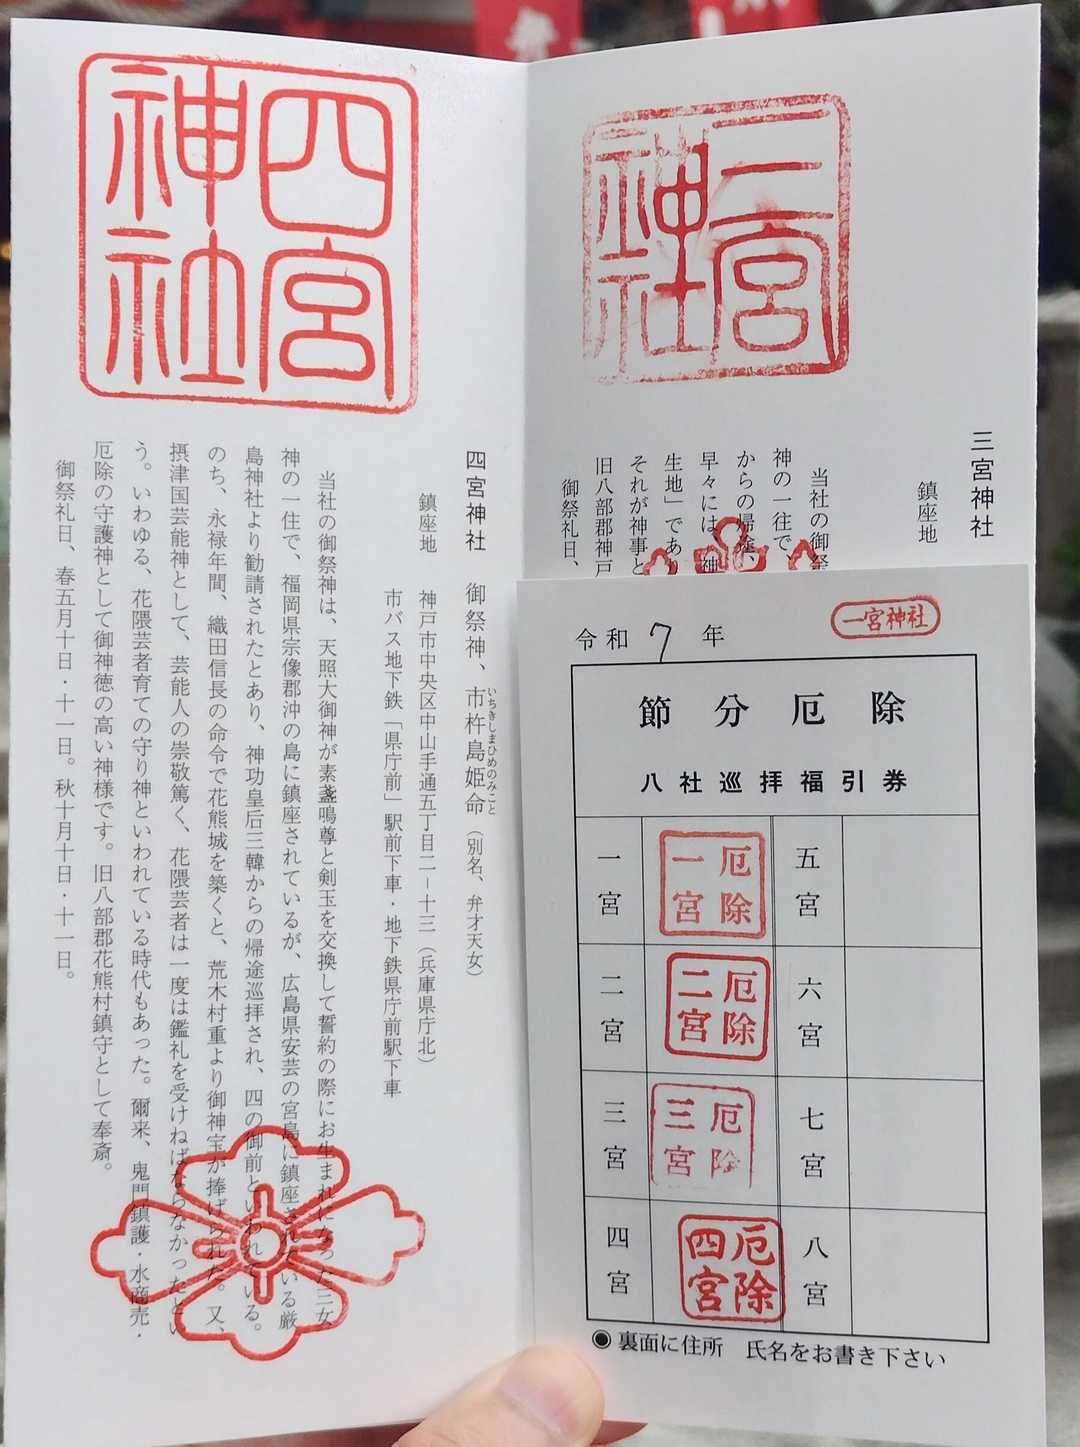 三宮神社
三宮神社
鎮座地
当社の御祭
神の一往で、
からの帰途、
早々には、神
生地」であり
それが神事と
旧八部郡神戸
御祭礼日、
四宮神社
四宮神社　御祭神、市杵島姫命（別名、弁才天女）
いちきしまひめのみこと
鎮座地　神戸市中央区中山手通五丁目二－十三（兵庫県庁北）
市バス地下鉄「県庁前」駅前下車・地下鉄県庁前駅下車
当社の御祭神は、天照大御神が素盞鳴尊と剣玉を交換して誓約の際にお生まれになった三女
神の一住で、福岡県宗像郡沖の島に鎮座されているが、広島県安芸の宮島に鎮座されている厳
島神社より勧請されたとあり、神功皇后三韓からの帰途巡拝され、四の御前といわれている。
のち、永禄年間、織田信長の命令で花熊城を築くと、荒木村重より御神宝が捧げられた。又、
摂津国芸能神として、芸能人の崇敬篤く、花隈芸者は一度は鑑礼を受けねばならなかったとい
う。いわゆる、花隈芸者育ての守り神といわれている時代もあった。爾来、鬼門鎮護・水商売・
厄除の守護神として御神徳の高い神様です。旧八部郡花熊村鎮守として奉斎。
御祭礼日、春五月十日・十一日。秋十月十日・十一日。
一宮神社
令和7年
節分厄除
八社巡拝福引券
一宮
厄除一宮
五宮
二宮
厄除二宮
六宮
三宮
厄除三宮
七宮
四宮
厄除四宮
八宮
◉裏面に住所　氏名をお書き下さい